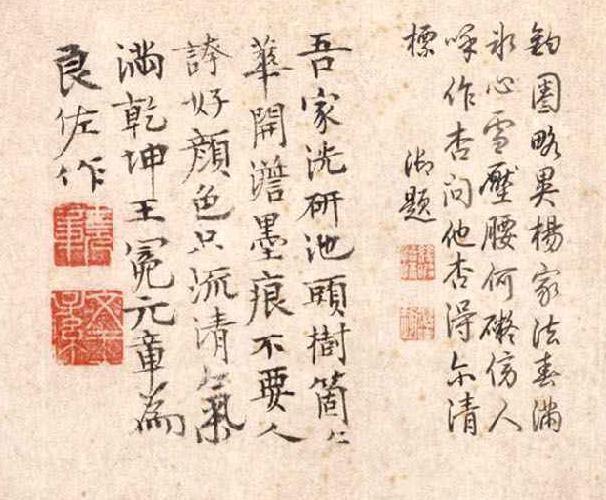 鈎圈略異楊家法春滿
冰心雪壓腰何礙傍人
呼作杏問他杏得尔清
標 御題
吾家洗研池頭樹箇〻
華開澹墨痕不要人
誇好顏色只流清氣
滿乾坤王冕元章為
良佐作
元章
文王子孫